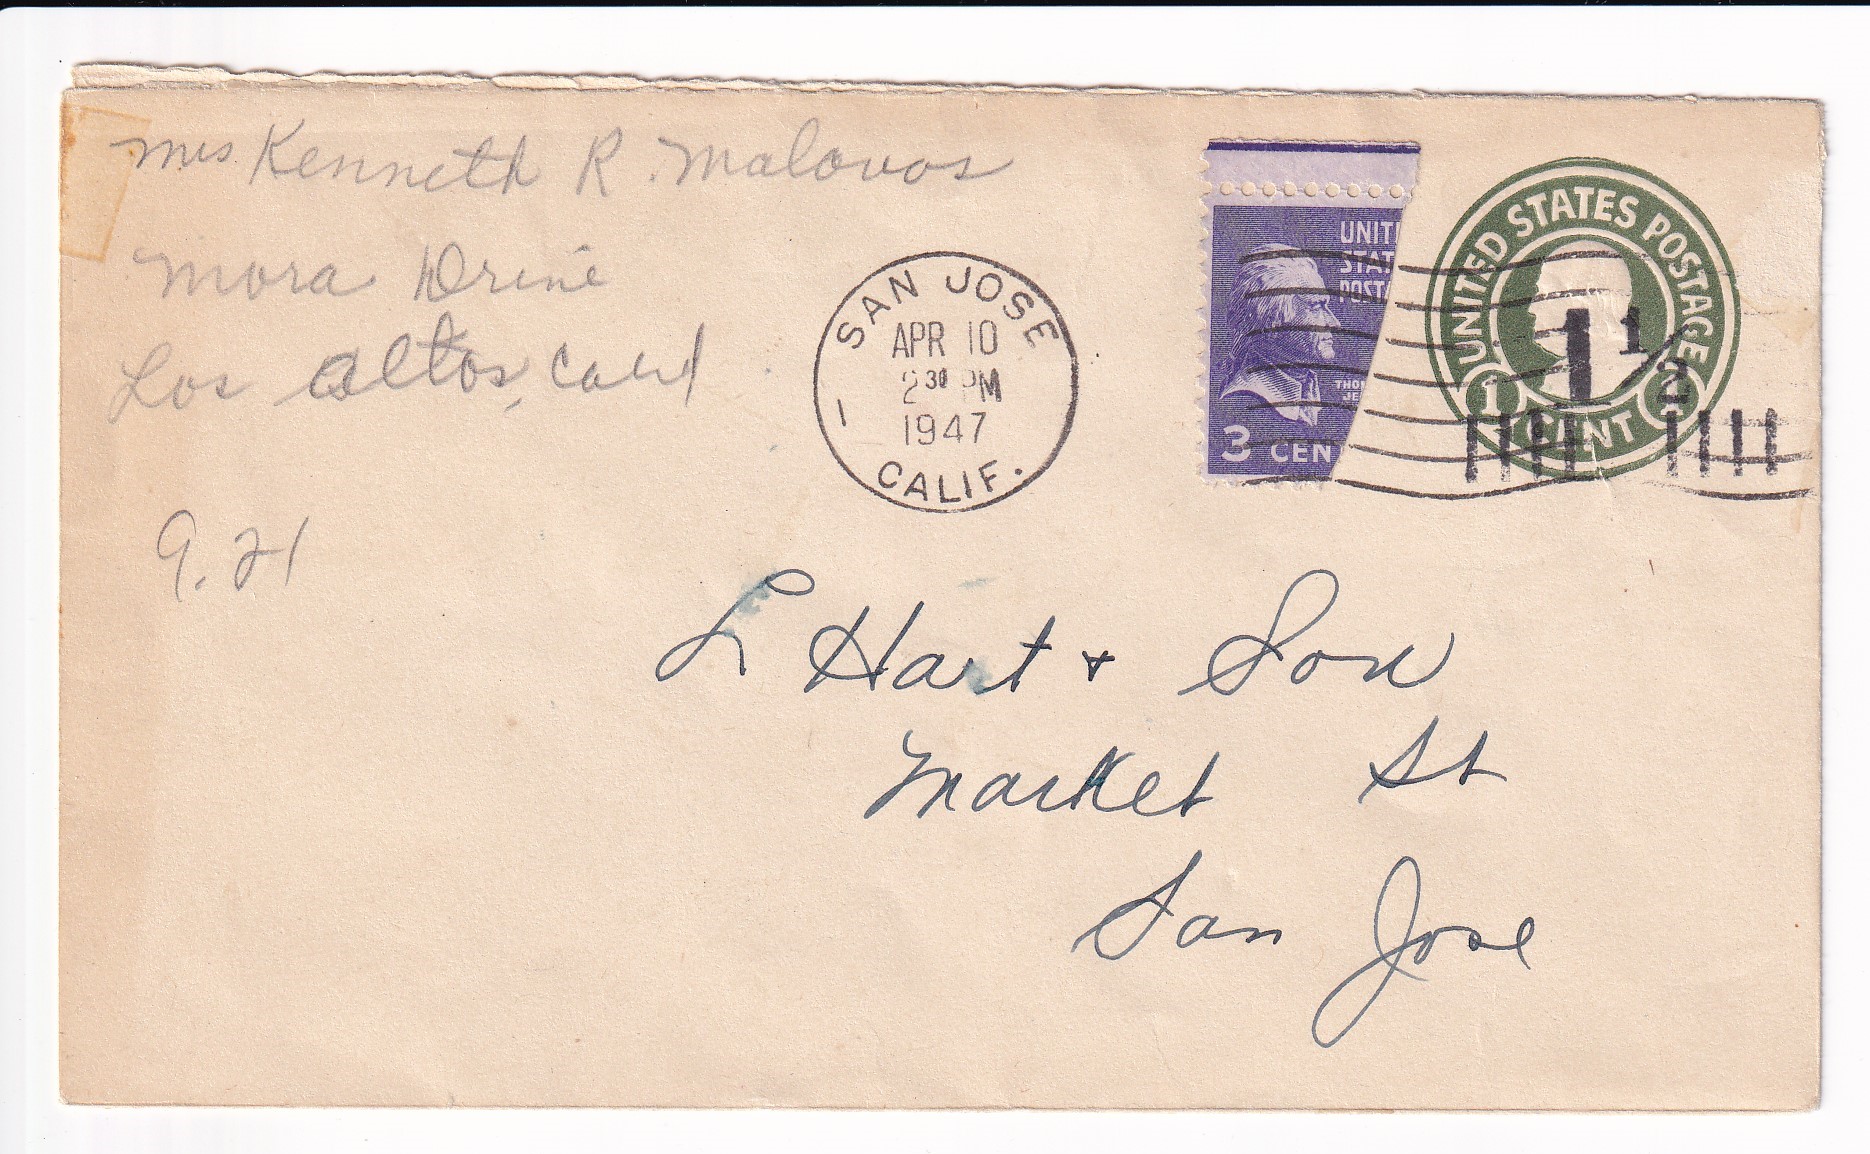 Mrs Kenneth R. Malovos
Mora Drive
Los Altos, Calif
9.21
SAN JOSE
APR 10
2 30 PM
1947
CALIF.
UNIT
STAT
POSTA
THOM
JE
3 CEN
UNITED STATES POSTAGE
1 CENT
1 1/2
L Hart + Son
Market St
San Jose